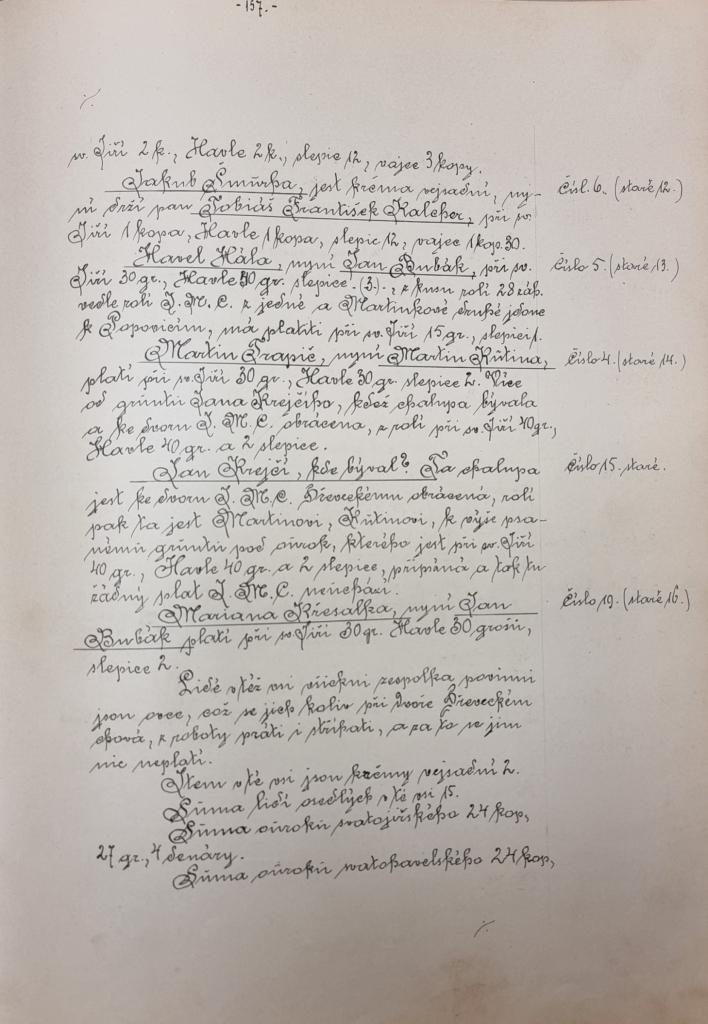 - 157. -
./.
sv. Jiří 2 k., Havle 2 k., slepic 12, vajec 3 kopy.
Jakub Šmůrha, jest krčma vejsadní, ny- Čísl. 6. (staré 12.)
ní drží pan Tobiáš František Kalcher, při sv.
Jiří 1 kopa, Havle 1 kopa, slepic 12, vajec 1 kop. 30.
Havel Hála, nyní Jan Bubák, při sv. Číslo 5. (staré 13.)
Jiří 30 gr., Havle 30 gr. slepice (3)., z kusu rolí 28 záh.
vedle rolí J. M. C. z jedné a Martinkově druhé jdouc
k Popovicům, má platiti při sv. Jiří 15 gr., slepici 1.
Martin Trapič, nyní Martin Kůtina, Číslo 4. (staré 14.)
platí při sv. Jiří 30 gr., Havle 30 gr. slepice 2. Více
od grůntu Jana Krejčího, kdež chalupa bývala
a ke dvoru J. M. C. obrácena, z rolí při sv. Jiří 40 gr.,
Havle 40 gr. a 2 slepice.
Jan Krejčí, kde býval? Ta chalupa Číslo 15. staré.
jest ke dvoru J. M. C. Dřeveckému obrácená, rolí
pak ta jest Martinovi, Kůtinovi, k výše psa-
nému grůntu pod ourok, kterého jest při sv. Jiří
40 gr., Havle 40 gr. a 2 slepice, připsána a tak tu
žádný plat J. M. C. neuchází.
Mariana Křesalka, nyní Jan Číslo 19. (staré 16.)
Bubák platí při sv. Jiří 30 gr. Havle 30 grošů,
slepice 2.
Lidé v též vsi všickni zespolka povinni
jsou ovce, což se jich koliv při dvoře Dřeveckém
chová, z roboty práti i stříhati, a za to se jim
nic neplatí.
Item v té vsi jsou krčmy vejsadní 2.
Sůma lidí osedlých v té vsi 15.
Sůma ouroků svatojiřského 24 kop,
27 gr., 4 denáry.
Sůma ouroků svatohavelského 24 kop,
./.